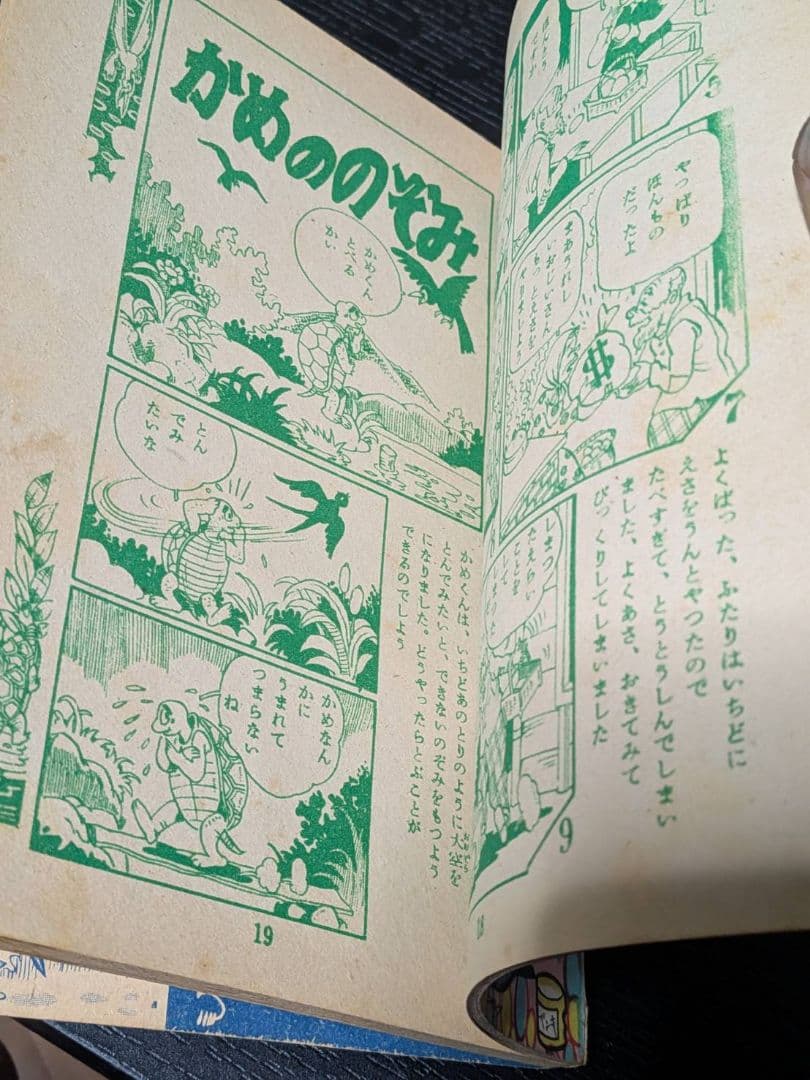 やっぱり
ほんもの
だったよ
$
7
よくばった、ふたりはいちどに
えさをうんとやつたので
たべすぎて、とうとうしんでしまい
ました、よくあさ、おきてみて
びっくりしてしまいました
しまつ
たえらい
ことを
9
18
かめののぞみ
かめくん
とべる
かい
とん
でみ
たいな
かめなん
かに
うまれて
つまらない
ね
かめくんは、いちどあのとりのように大空を
おおぞら
とんでみたいと、できないのぞみをもつよう
になりました。どうやったらとぶことが
できるのでしよう
19